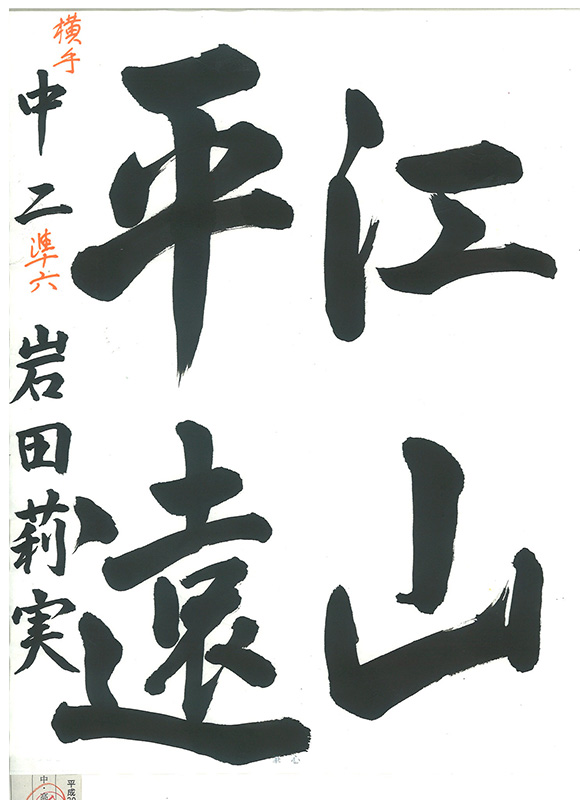 江山
平遠
横手
中二
準六
岩田莉実
平成
中・高